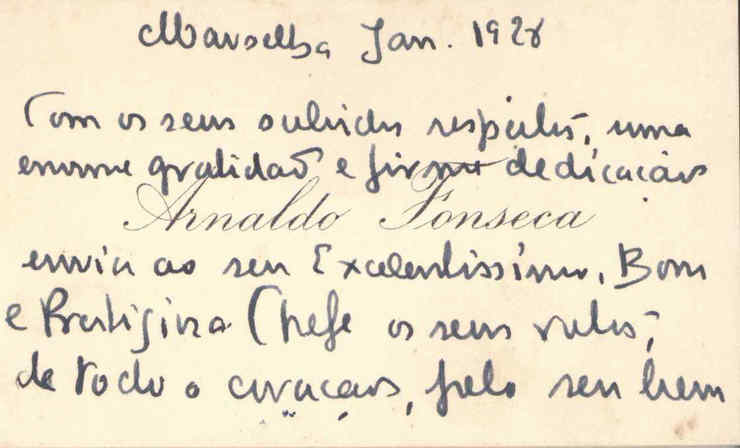 Marselha Jan. 1928
Com os seus subidos respeitos, uma
enorme gratidão e firme dedicação
Arnaldo Fonseca
envia ao seu Excelentissimo, Bom
e Prestigioso Chefe os seus votos,
de todo o coração, pelo seu bem